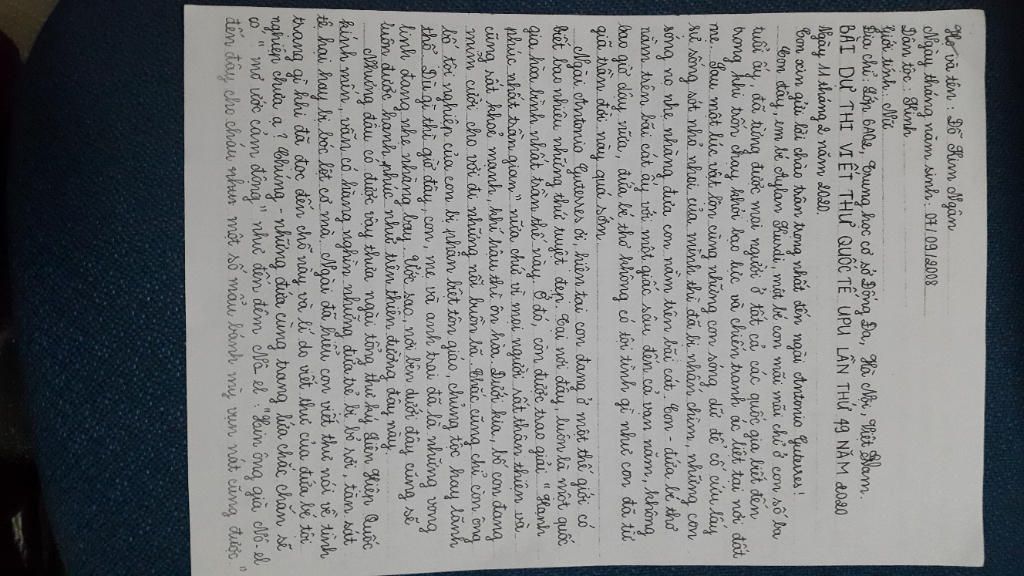 Họ và tên : Đỗ Kim Ngân
Ngày tháng năm sinh : 07/09/2008
Giới tính : Nữ
Dân tộc : Kinh
Địa chỉ : Lớp 6A02, Trung học cơ sở Đống Đa, Hà Nội, Việt Nam.
BÀI DỰ THI VIẾT THƯ QUỐC TẾ UPU LẦN THỨ 49 NĂM 2020
Ngày 11 tháng 2 năm 2020.
Con xin gửi lời chào trân trọng nhất đến ngài Antonio Guterres!
Con đây, em bé Aylan Kurdi, một bé con mãi mãi chỉ ở con số ba
tuổi ấy, đã từng được mọi người ở tất cả các quốc gia biết đến
trong khi trốn chạy khỏi bạo lực và chiến tranh ác liệt tại nơi đất
mẹ. Sau một lúc vật lộn cùng những con sóng dữ để cố cứu lấy
sự sống sót nhỏ nhoi của mình thì đã bị nhấn chìm, những con
sóng vỗ nhẹ nhàng đưa con nằm trên bãi cát. Con - đứa bé thơ
nằm trên bãi cát ấy với một giấc sâu đến cả vạn năm, không
bao giờ dậy nữa, đứa bé thơ không có tội tình gì như con đã từ
giã trần đời này quá sớm.
Ngài Antonio Guterres ơi, hiện tại con đang ở một thế giới có
biết bao nhiêu những thứ tuyệt đẹp. Tại nơi đây, luôn là một quốc
gia hòa bình nhất trần thế này. Ở đó, con được trao giải "Hạnh
phúc nhất trần gian" nữa chứ vì mọi người rất thân thiện và
mỉm cười cho vơi đi những nỗi buồn lã Khác cũng chỉ còn ông
cũng rất khỏe mạnh, khí hậu thì ôn hòa. Dưới kia, bố con đang
lo tội nghiệp của con bị phân biệt tôn giáo, chủng tộc hay lãnh
thổ. Dù gì thì giờ đây, con, mẹ và anh trai đã là những vong
linh đang nhẹ nhàng bay. Ước sao, nơi bên dưới đây cũng sẽ
luôn được hạnh phúc như trên thiên đường đây này.
Nhưng đâu có được vậy thưa ngài tổng thư ký Liên Hiệp Quốc
kính mến, vẫn có hàng nghìn những đứa trẻ bị bỏ rơi, tàn sát
tệ hại hay bị bóc lột cơ mà. Ngài đã hiểu con viết thư nói về tình
trạng gì khi đã đọc đến chỗ này và lí do viết thư của đứa bé tội
nghiệp chưa ạ? Chúng - những đứa cùng trang lứa chắc chắn sẽ
có "mơ ước cảm động" như đến đêm Nô el : "Xin ông già Nô-el
đến đây cho cháu như một số mẩu bánh mỳ vụn nát cũng được"